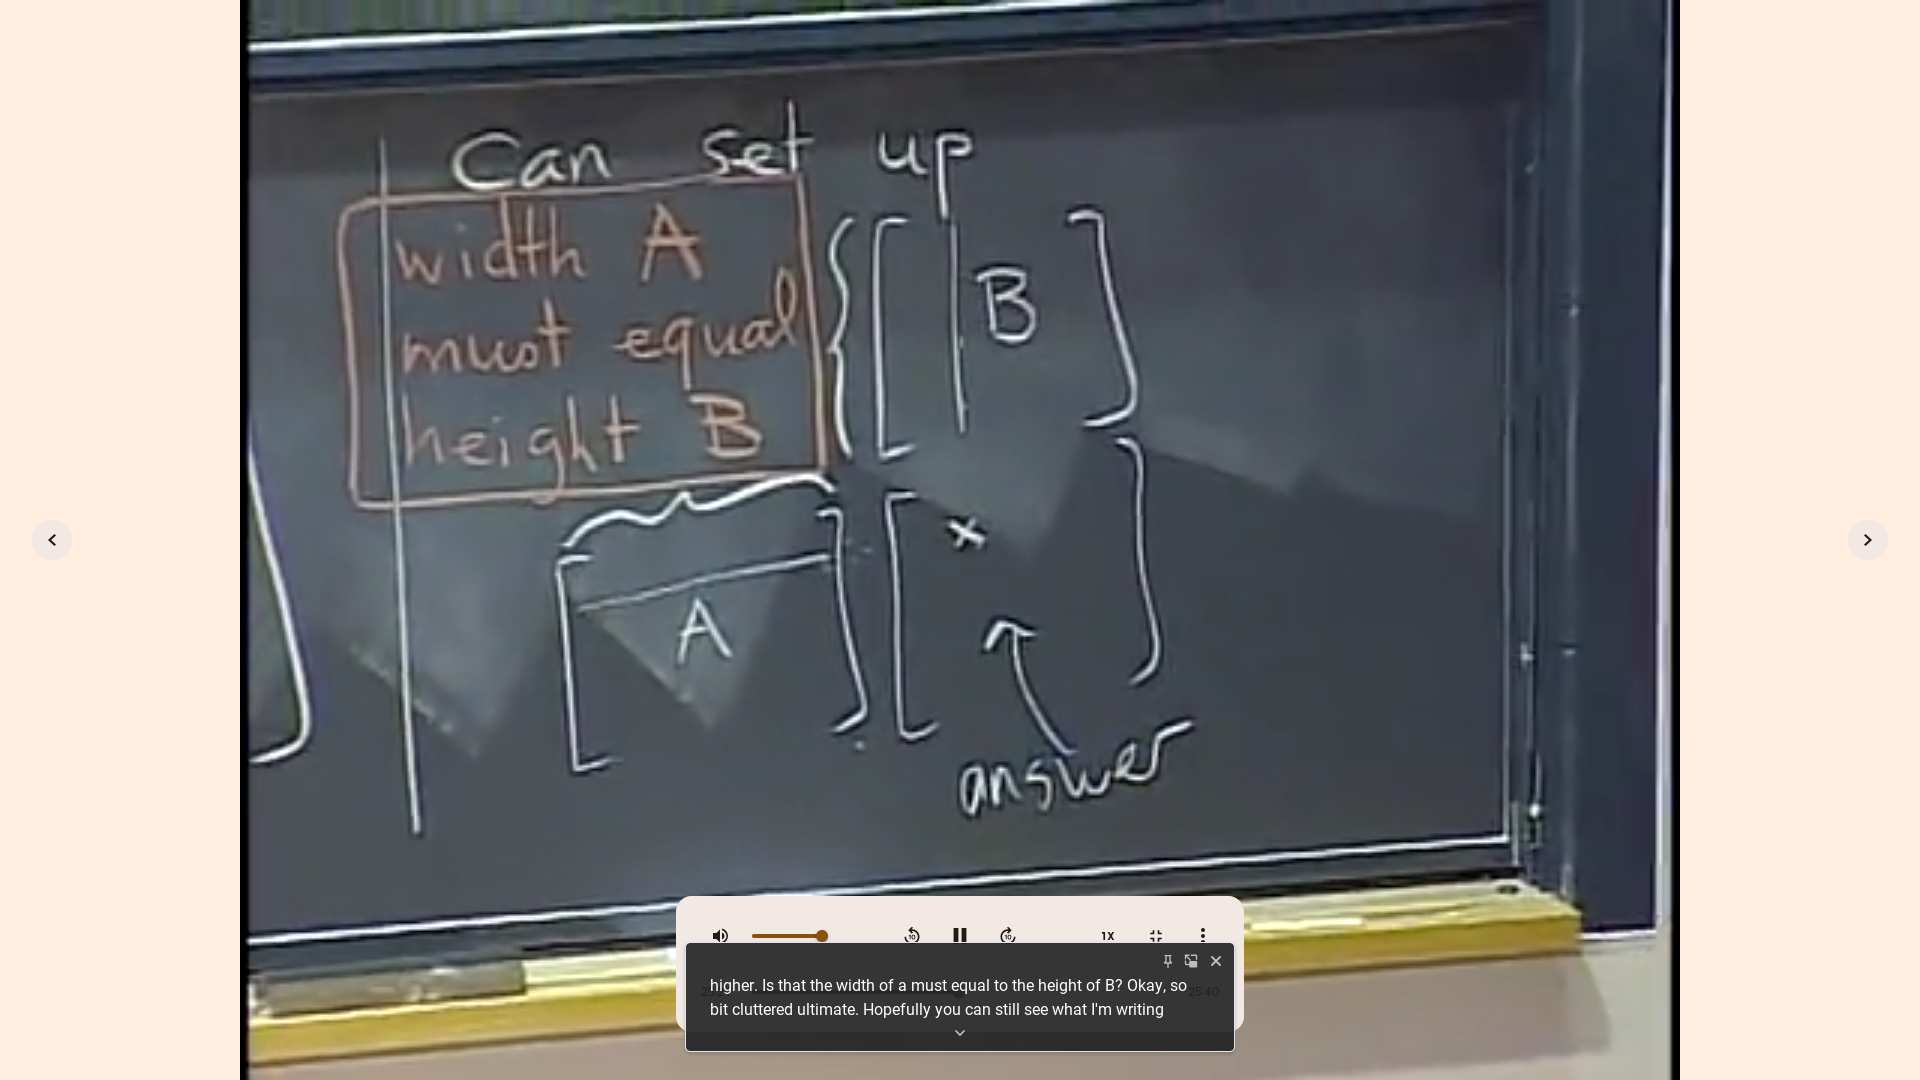 Can set up
width A
must equal
height B
B
A
x
answer
1X
higher. Is that the width of a must equal to the height of B? Okay, so
bit cluttered ultimate. Hopefully you can still see what I'm writing